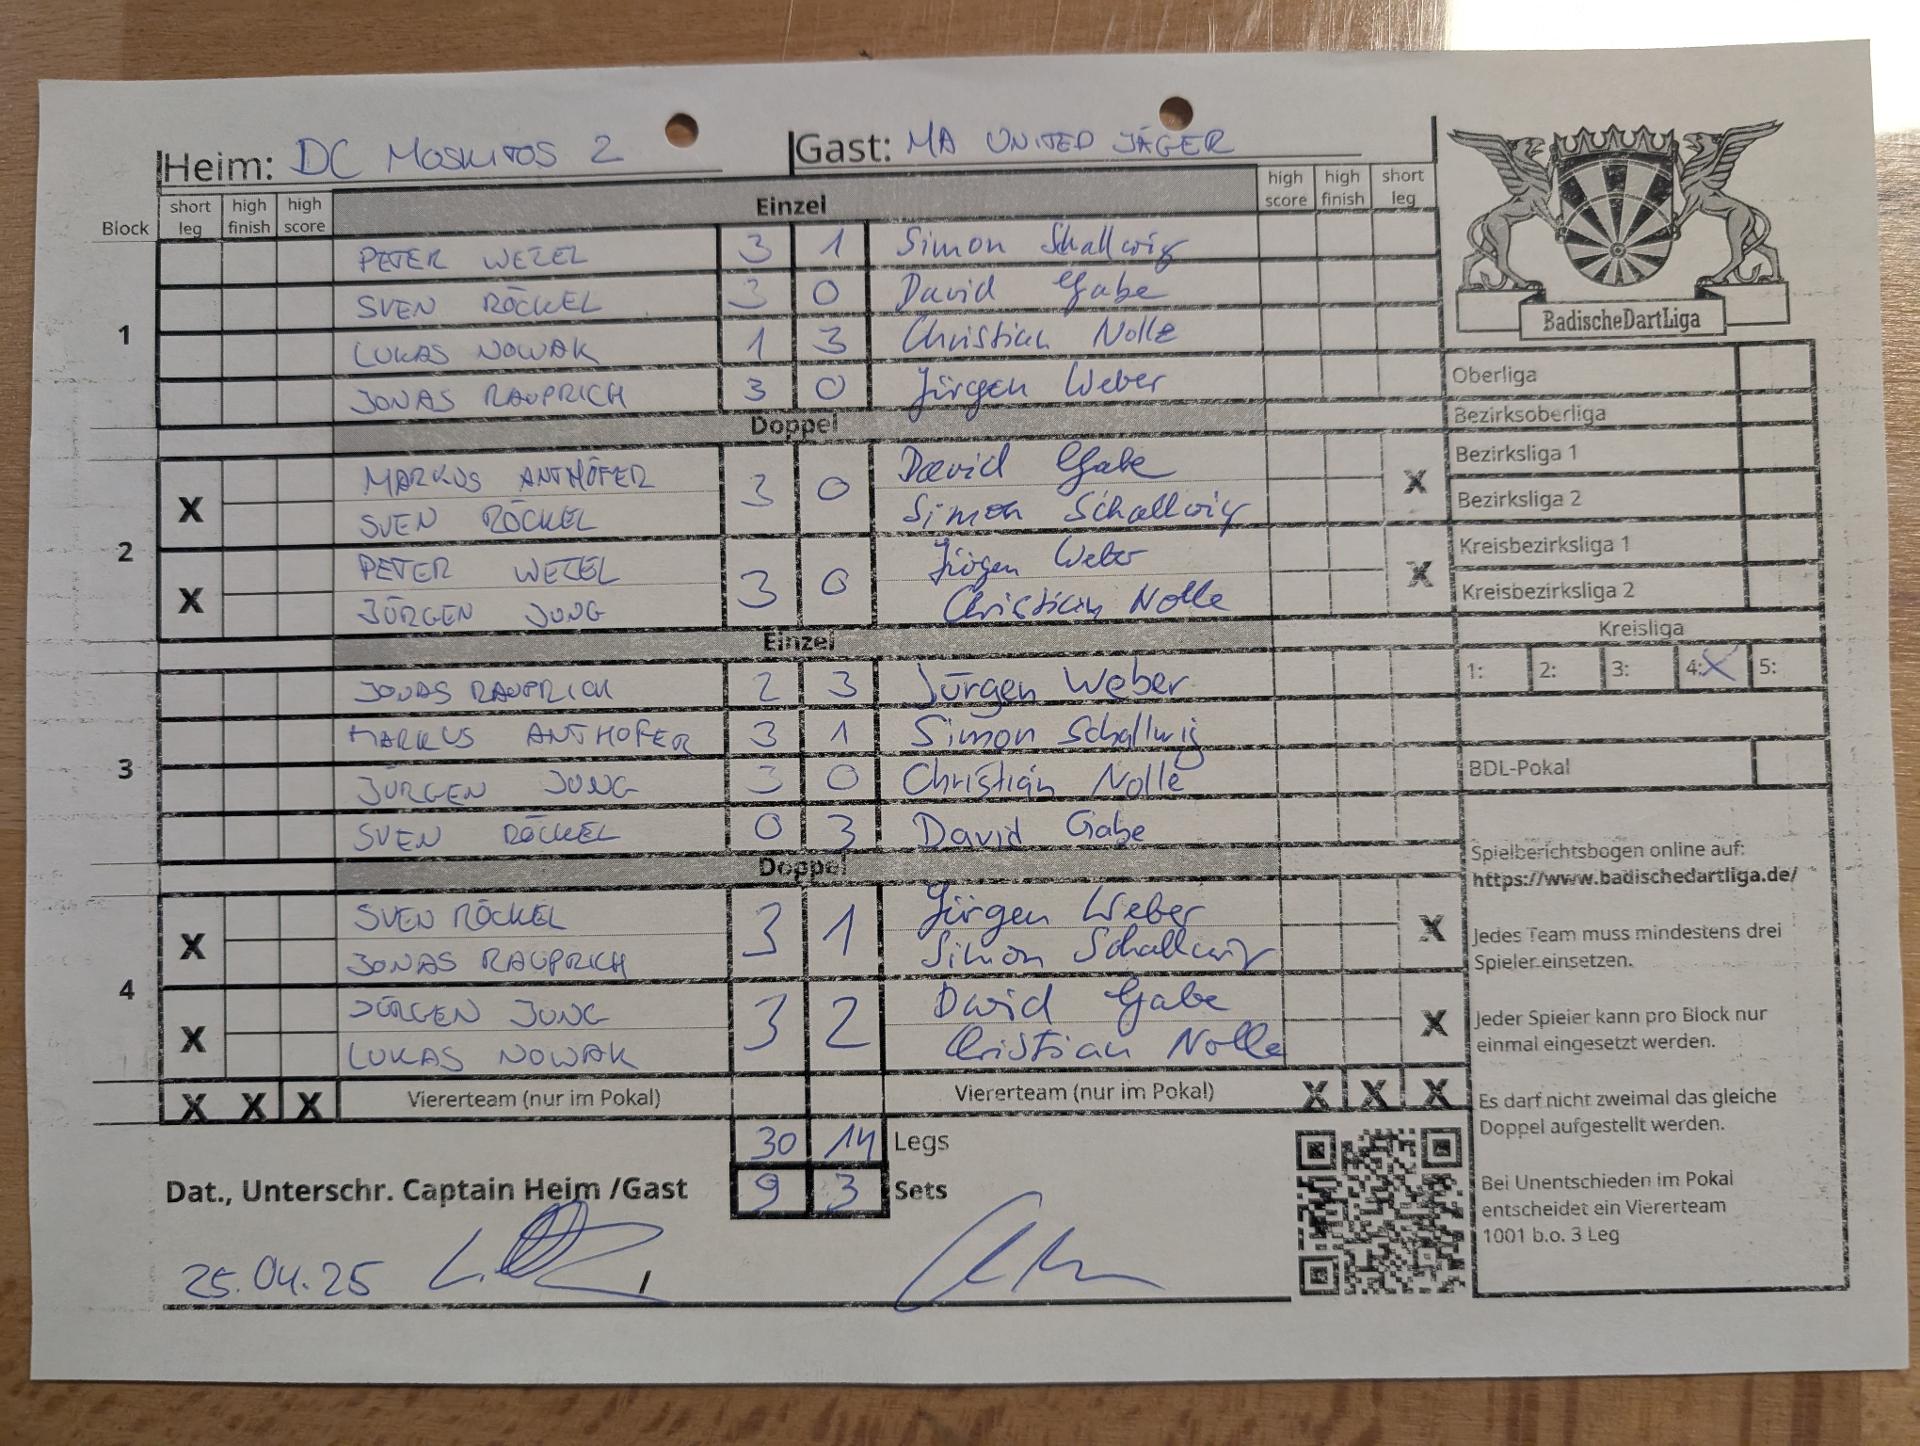 Heim: DC MOSKITOS 2 Gast: MA UNITED JÄGER
Block short leg high finish high score Einzel high score high finish short leg
1
PETER WEZEL 3 1 Simon Schallwig
SVEN RÖCKEL 3 0 David Gabe
LUKAS NOWAK 1 3 Christian Nolle
JONAS RAUPRICH 3 0 Jürgen Weber
Doppel
2
X MARKUS ANTHÖFER 3 0 David Gabe X
SVEN RÖCKEL Simon Schallwig
X PETER WEZEL 3 0 Jürgen Weber X
JÜRGEN JUNG Christian Nolle
Einzel
3
JONAS RAUPRICH 2 3 Jürgen Weber
MARKUS ANTHÖFER 3 1 Simon Schallwig
JÜRGEN JUNG 3 0 Christian Nolle
SVEN RÖCKEL 0 3 David Gabe
Doppel
4
X SVEN RÖCKEL 3 1 Jürgen Weber X
JONAS RAUPRICH Simon Schallwig
X JÜRGEN JUNG 3 2 David Gabe X
LUKAS NOWAK Christian Nolle
X X X Viererteam (nur im Pokal) Viererteam (nur im Pokal) X X X
30 14 Legs
Dat., Unterschr. Captain Heim /Gast 9 3 Sets
25.04.25
BadischeDartLiga
Oberliga
Bezirksoberliga
Bezirksliga 1
Bezirksliga 2
Kreisbezirksliga 1
Kreisbezirksliga 2
Kreisliga
1: 2: 3: 4: X 5:
BDL-Pokal
Spielberichtsbogen online auf:
https://www.badischedartliga.de/
Jedes Team muss mindestens drei
Spieler einsetzen.
Jeder Spieler kann pro Block nur
einmal eingesetzt werden.
Es darf nicht zweimal das gleiche
Doppel aufgestellt werden.
Bei Unentschieden im Pokal
entscheidet ein Viererteam
1001 b.o. 3 Leg